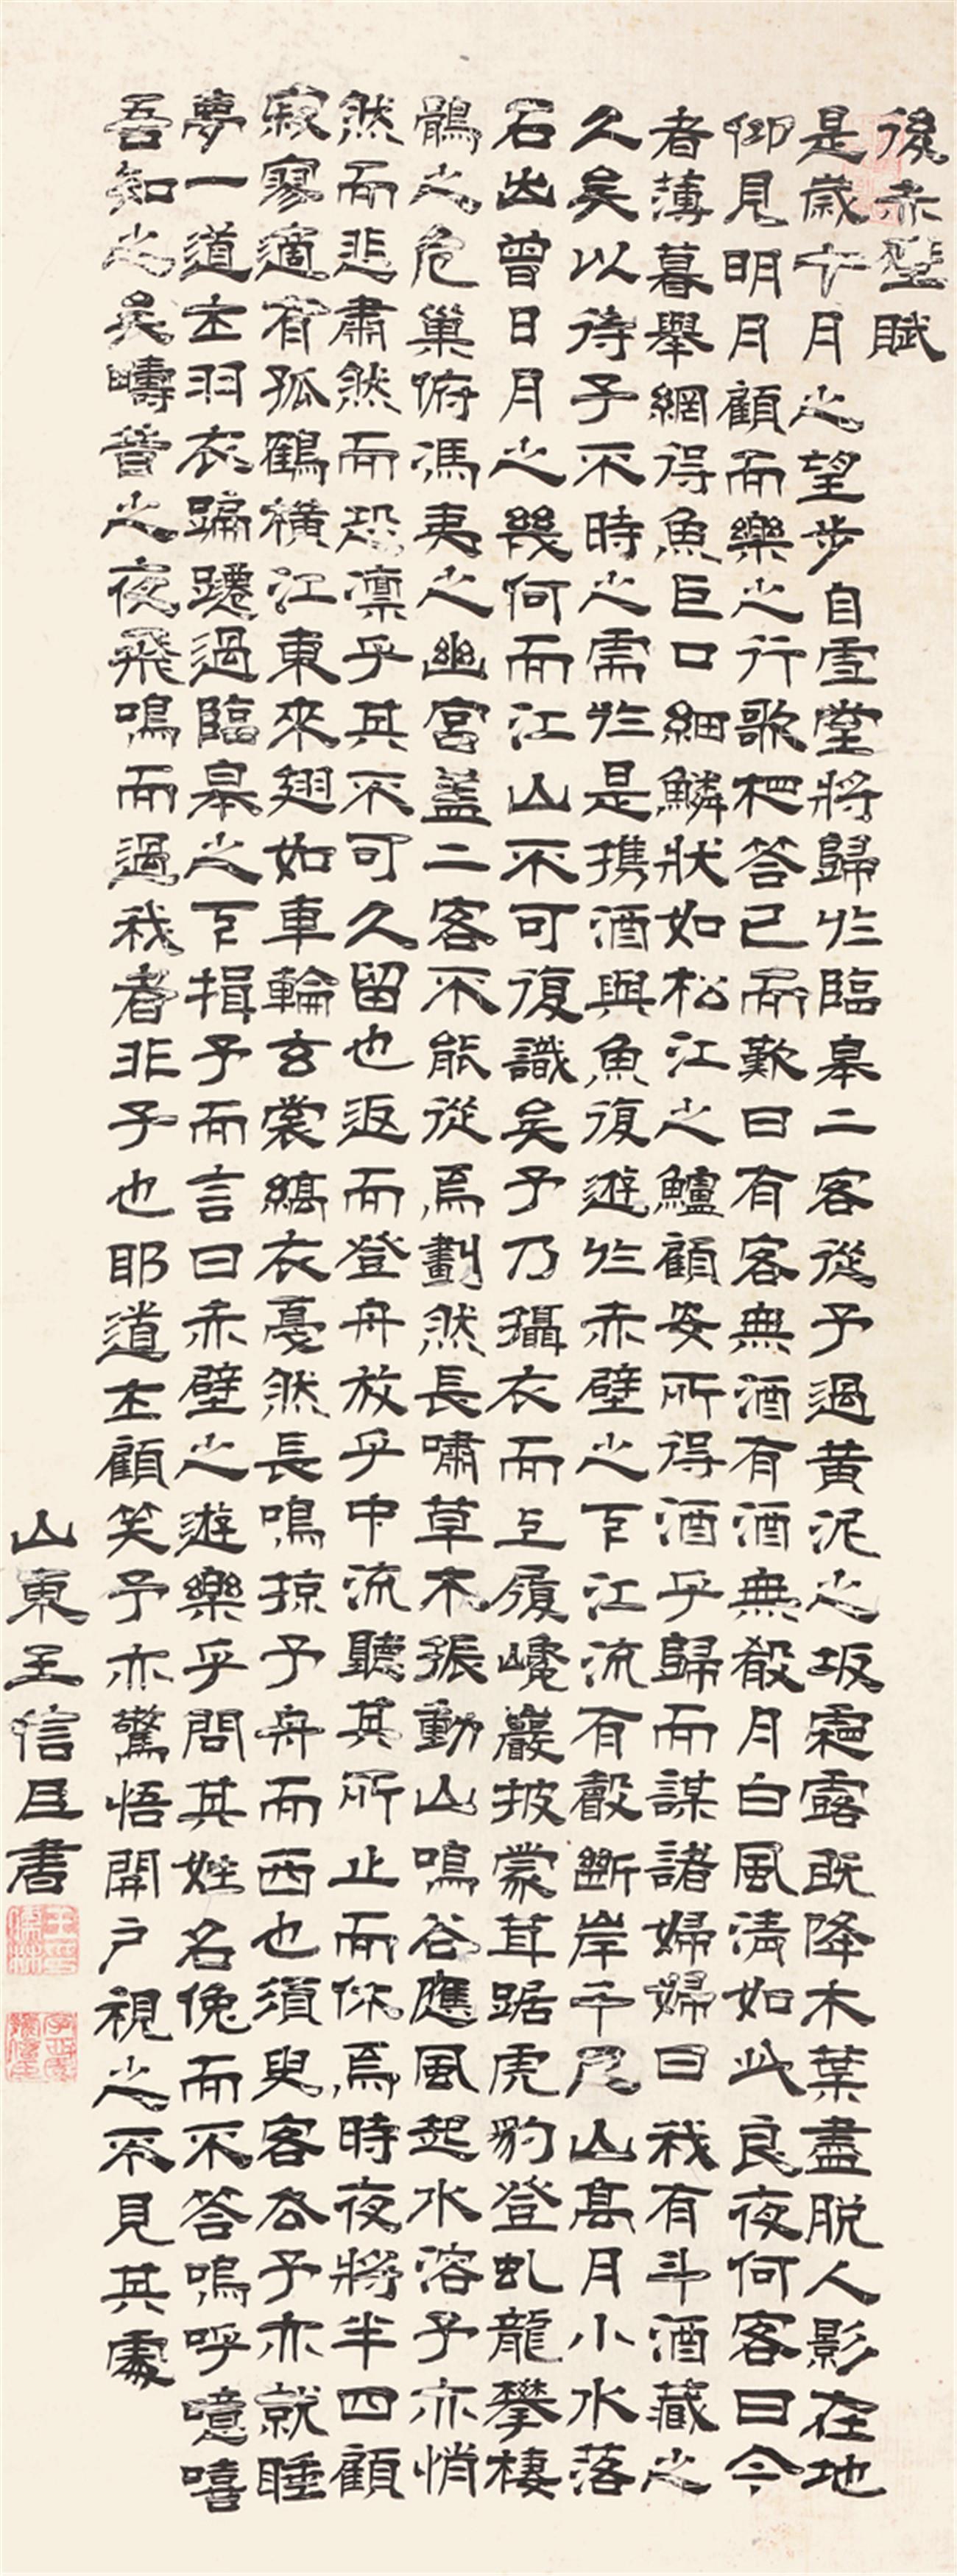 後赤壁賦
是歲十月之望步自雪堂將歸於臨皋二客從予過黃泥之坂霜露既降木葉盡脫人影在地
仰見明月顧而樂之行歌相答已而歎曰有客無酒有酒無殽月白風清如此良夜何客曰今
者薄暮舉網得魚巨口細鱗狀如松江之鱸顧安所得酒乎歸而謀諸婦婦曰我有斗酒藏之
久矣以待子不時之需於是攜酒與魚復遊於赤壁之下江流有聲斷岸千尺山高月小水落
石出曾日月之幾何而江山不可復識矣予乃攝衣而上履巉巖披蒙茸踞虎豹登虬龍攀棲
鶻之危巢俯馮夷之幽宮蓋二客不能從焉劃然長嘯草木振動山鳴谷應風起水涌予亦悄
然而悲肅然而恐凜乎其不可久留也返而登舟放乎中流聽其所止而休焉時夜將半四顧
寂寥適有孤鶴橫江東來翅如車輪玄裳縞衣戛然長鳴掠予舟而西也須臾客去予亦就睡
夢一道士羽衣蹁躚過臨皋之下揖予而言曰赤壁之遊樂乎問其姓名俛而不答嗚呼噫嘻
吾知之矣疇昔之夜飛鳴而過我者非子也耶道士顧笑予亦驚悟開戶視之不見其處
山東王信且書